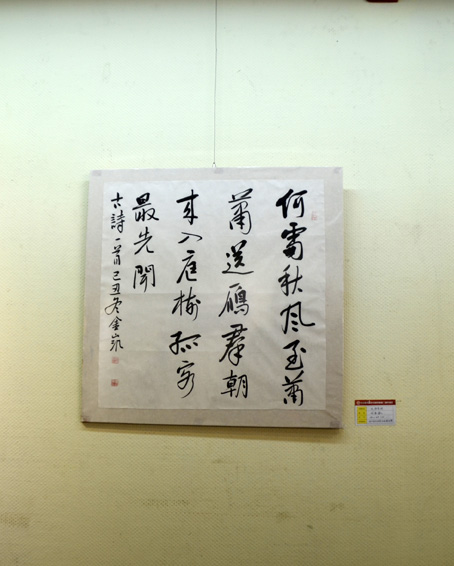 何處秋風至蕭
蕭送鴈羣朝
來入庭樹孤客
最先聞
古詩一首己丑冬金凱